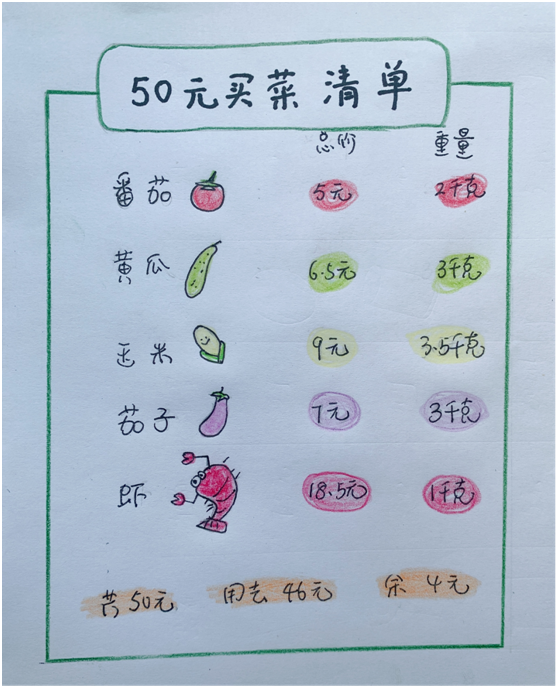 50元买菜清单
总价 重量
番茄 5元 2千克
黄瓜 6.5元 3千克
玉米 9元 3.5千克
茄子 7元 3千克
虾 18.5元 1千克
共50元 用去46元 余4元